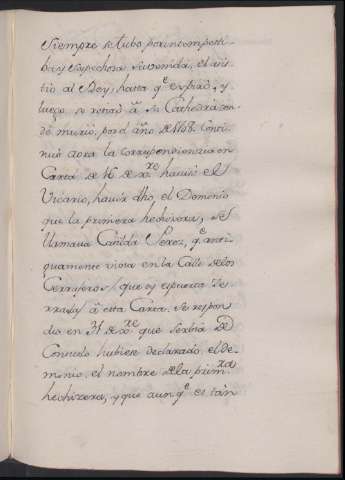 Siempre se tubo por incompeti-
ba, y sospechosa su venida, el asis-
tio al Rey, hasta q.e espiró, y
luego se retiró â su Cathedra don-
de murió, por el año de 1708. Conti-
nuó aora la correspondiencia en
Carta de 16 de x.re havia el
Vicario, havia dho, el Demonio
que la primera hechizera, se
llamava Casilda Perez, q.e anti-
guamente vivia en la Calle de los
Cerrajeros, que oy es puerta Ser-
rada, y â esta Carta, se respon-
dio en 31 de x.re que serbia De
Consuelo hubiese declarado, el De-
monio, el nombre de la prim.ra
hechizera, y que aunq.e es tan